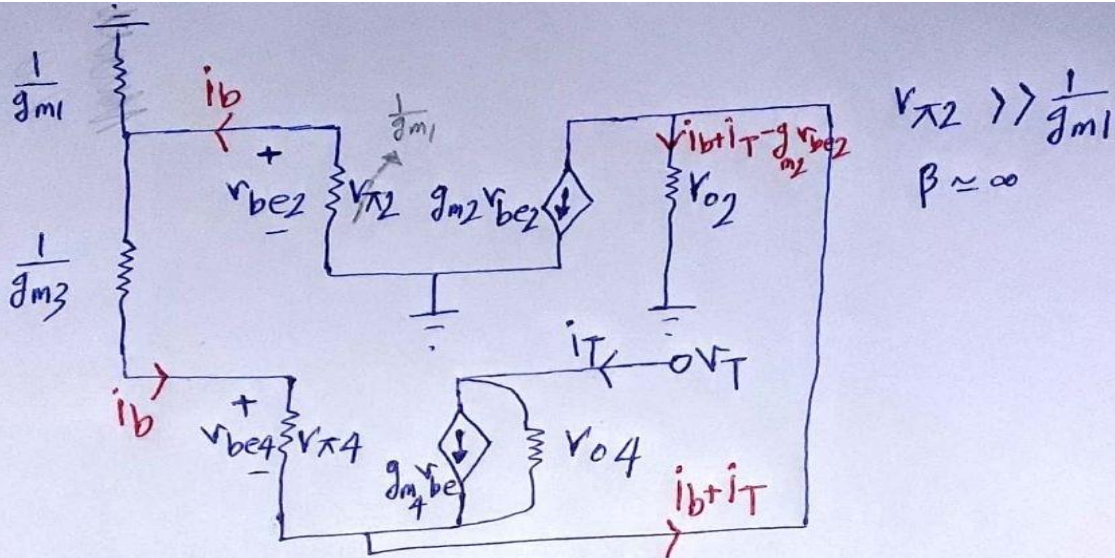 1/gm1
ib
1/gm1
+
vbe2
-
rπ2
gm2 vbe2
ib+iT-gm2 vbe2
ro2
rπ2 >> 1/gm1
β ≃ ∞
1/gm3
iT
vT
ib
+
vbe4
-
rπ4
gm4 vbe
ro4
ib+iT